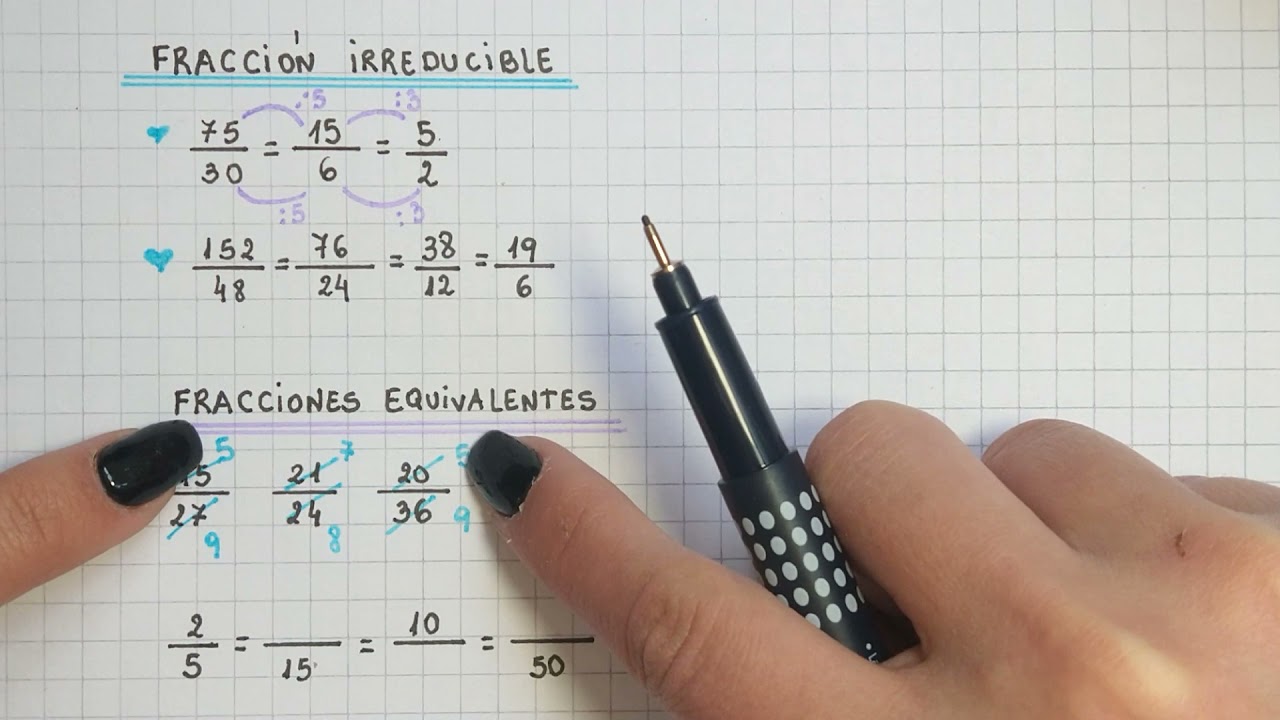 FRACCIÓN IRREDUCIBLE
:5 :3
75/30 = 15/6 = 5/2
:5 :3
152/48 = 76/24 = 38/12 = 19/6
FRACCIONES EQUIVALENTES
5 7 5
15/27 21/24 20/36
9 8 9
2/5 = /15 = 10/ = /50